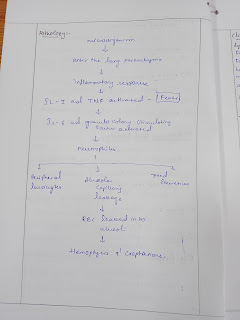 Pathology:-
microorganism
↓
enter the lung parenchyma
↓
Inflammatory response
↓
IL-I and TNF activated - Fever
↓
IL-6 and granulo colony stimulating
factor activated
↓
neutrophils
↓
Peripheral
leucocytes
Alveolar
capillary
leakage
↓
RBC leaked into
alveoli
↓
Hemoptysis &